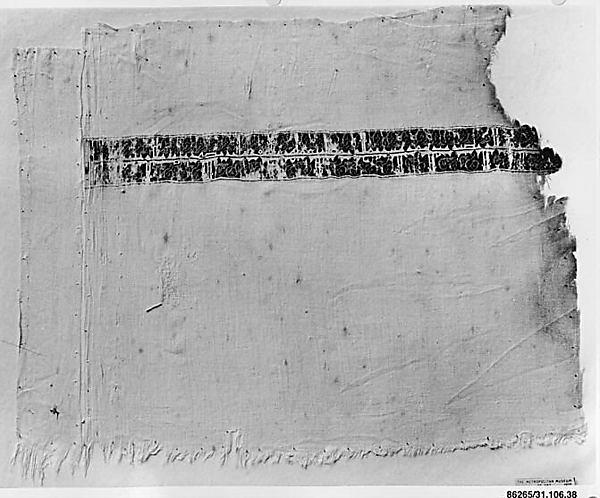 THE METROPOLITAN MUSEUM
86265/31.106.38